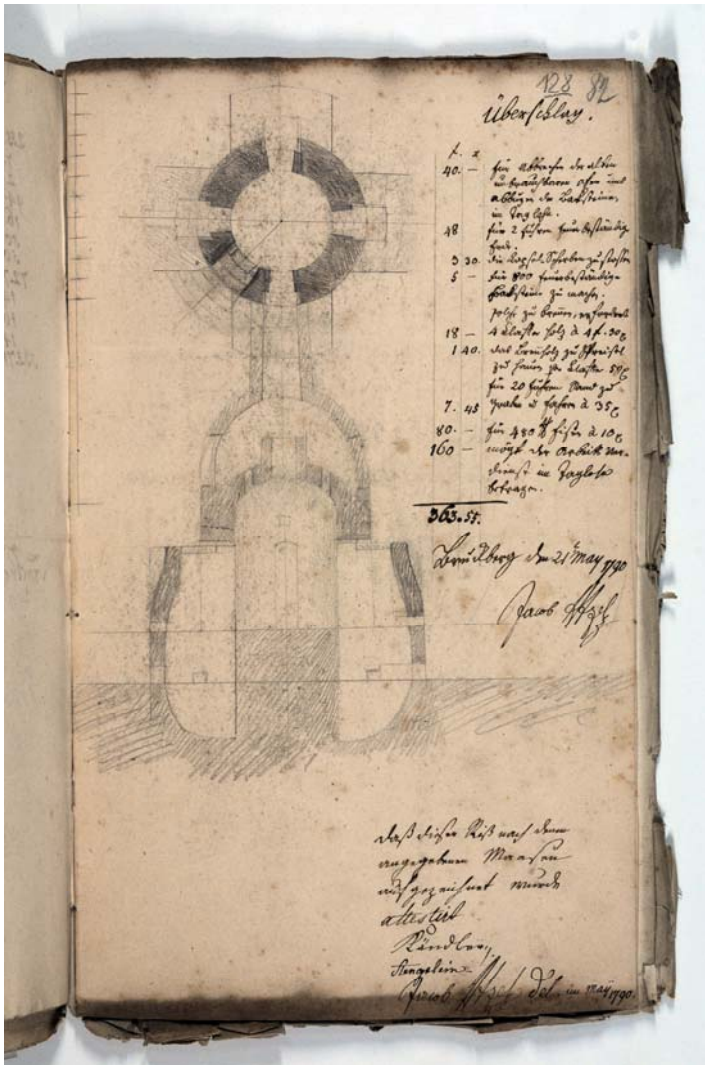 128 82
Überschlag.
f. x
40. — für Abbrechen des alten
unbrauchbaren ofen und
der Backsteine,
im Taglohn.
48 für 2 Fuhren feuerbeständige
Erde.
3 30. die Kapsel-Scherben zu stossen
5 — für 800 feuerbeständige
Backsteine zu machen.
solche zu brennen, erfordert
18 — 4 Klafter Holz à 4 f. 30 x
1 40. das Brennholz zu
zu hauen pr Klafter
für 20 Fuhren Sand zu
7. 45 graben u fahren à 35 x
80. — für 480 ℔ Eisen à 10 x
160 — mögte der Arbeits Ver-
dienst im Taglohn
betragen.
363.55.
Bruckberg den 21 May 1790
Jacob
daß dieser Riß nach denen
angegebenen Maasen
aufgezeichnet wurde
attestirt
Jacob del. im may 1790.